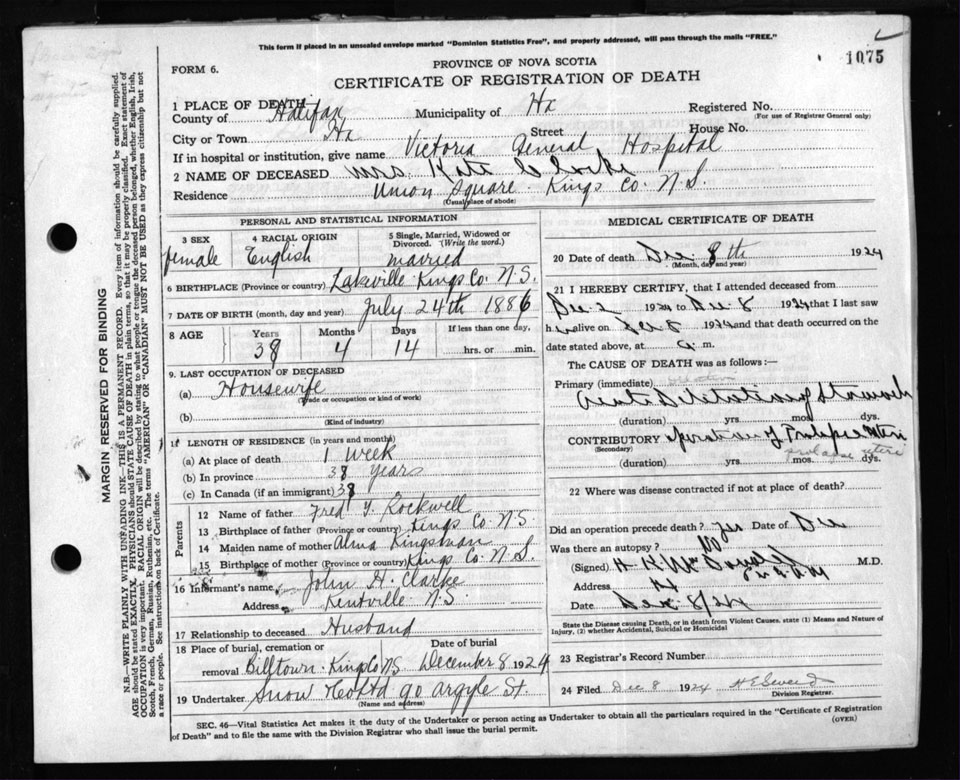 This form if placed in an unsealed envelope marked "Dominion Statistics Free", and properly addressed, will pass through the mails "FREE."
1075
PROVINCE OF NOVA SCOTIA
FORM 6.
CERTIFICATE OF REGISTRATION OF DEATH
1 PLACE OF DEATH
County of Halifax Municipality of Hx Registered No.
(For use of Registrar General only)
City or Town Hx Street House No.
If in hospital or institution, give name Victoria General Hospital
2 NAME OF DECEASED Mrs. Kate Clarke
Residence Union Square Kings Co. N.S.
(Usual place of abode)
PERSONAL AND STATISTICAL INFORMATION
3 SEX 4 RACIAL ORIGIN 5 Single, Married, Widowed or Divorced. (Write the word.)
female English married
6 BIRTHPLACE (Province or country) Lakeville Kings Co. N.S.
7 DATE OF BIRTH (month, day and year) July 24th 1886
8 AGE Years Months Days If less than one day,
38 4 14 hrs. or min.
9. LAST OCCUPATION OF DECEASED
(a) Housewife
(Trade or occupation or kind of work)
(b)
(Kind of industry)
11 LENGTH OF RESIDENCE (in years and months)
(a) At place of death 1 week
(b) In province 38 years
(c) In Canada (if an immigrant) 38
Parents
12 Name of father Fred Y. Rockwell
13 Birthplace of father (Province or country) Kings Co. N.S.
14 Maiden name of mother Alma Kingsman
15 Birthplace of mother (Province or country) Kings Co. N.S.
16 Informant's name John H. Clarke
Address Kentville N.S.
17 Relationship to deceased Husband
18 Place of burial, cremation or Date of burial
removal Billtown Kings Co NS December 8 1924
19 Undertaker Snow & Co Ltd 90 Argyle St.
(Name and address)
MEDICAL CERTIFICATE OF DEATH
20 Date of death Dec 8th 1924
(Month, day and year)
21 I HEREBY CERTIFY, that I attended deceased from
Dec 2 1924 to Dec 8 1924 that I last saw
h alive on Dec 8 1924 and that death occurred on the
date stated above, at a m.
The CAUSE OF DEATH was as follows :—
Primary (immediate)
Acute Dilatation of Stomach
(duration) yrs mos. dys.
CONTRIBUTORY operation of Prolapse Uteri
(Secondary) prolapse uteri
(duration) yrs. mos. dys.
22 Where was disease contracted if not at place of death?
Did an operation precede death? yes Date of Dec
Was there an autopsy? No
(Signed) H K McDonald M.D.
Address Hx
Date Dec 8/24
State the Disease causing Death, or in death from Violent Causes, state (1) Means and Nature of
Injury, (2) whether Accidental, Suicidal or Homicidal
23 Registrar's Record Number
24 Filed Dec 8 1924
Division Registrar.
SEC. 46—Vital Statistics Act makes it the duty of the Undertaker or person acting as Undertaker to obtain all the particulars required in the "Certificate of Registration
of Death" and to file the same with the Division Registrar who shall issue the burial permit.
(OVER)
MARGIN RESERVED FOR BINDING
N.B.—WRITE PLAINLY WITH UNFADING INK—THIS IS A PERMANENT RECORD. Every item of information should be carefully supplied.
AGE should be stated EXACTLY. PHYSICIANS should STATE CAUSE OF DEATH in plain terms, so that it may be properly classified. Exact statement of
OCCUPATION is very important. RACIAL ORIGIN will be described by stating to what people or tongue the deceased person belonged, whether English, Irish,
Scotch, French, German, Russian, Ruthenian, etc. The terms "AMERICAN" or "CANADIAN" MUST NOT BE USED as they express citizenship but not
a race or people. See instructions on back of Certificate.